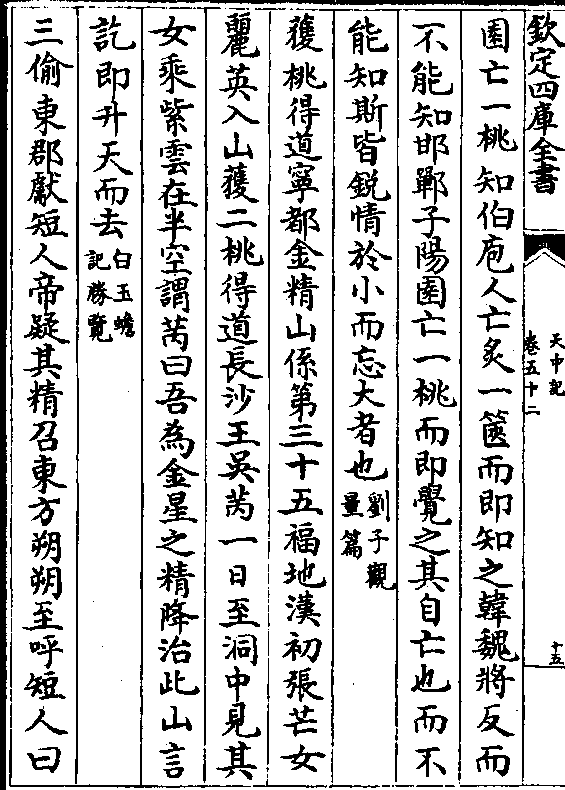 欽定四庫全書
天中記
卷五十二
十五
園亡一桃知伯庖人亡炙一篋而即知之韓魏將反而
不能知邯鄲子陽園亡一桃而即覺之其自亡也而不
能知斯皆鋭情於小而忘大者也劉子觀
量篇
獲桃得道寧都金精山係第三十五福地漢初張芒女
麗英入山獲二桃得道長沙王吳芮一日至洞中見其
女乘紫雲在半空謂芮曰吾為金星之精降治此山言
訖即升天而去白玉蟾
記勝覽
三偷東郡獻短人帝疑其精召東方朔朔至呼短人曰